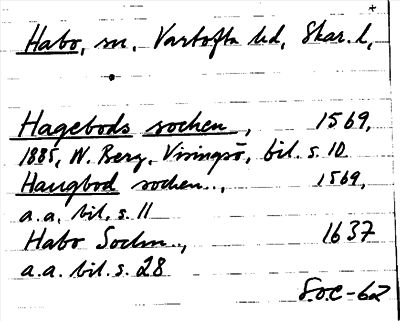 Habo, sn, Vartofta hd, Skar. l,
Hagebods sochen, 1569,
1885, W. Berg, Visingsö, bil. s. 10
Haugbod sochen.., 1569,
a.a. bil. s. 11
Habo Sochn.., 1637
a.a. bil. s. 28
S.O.C-62